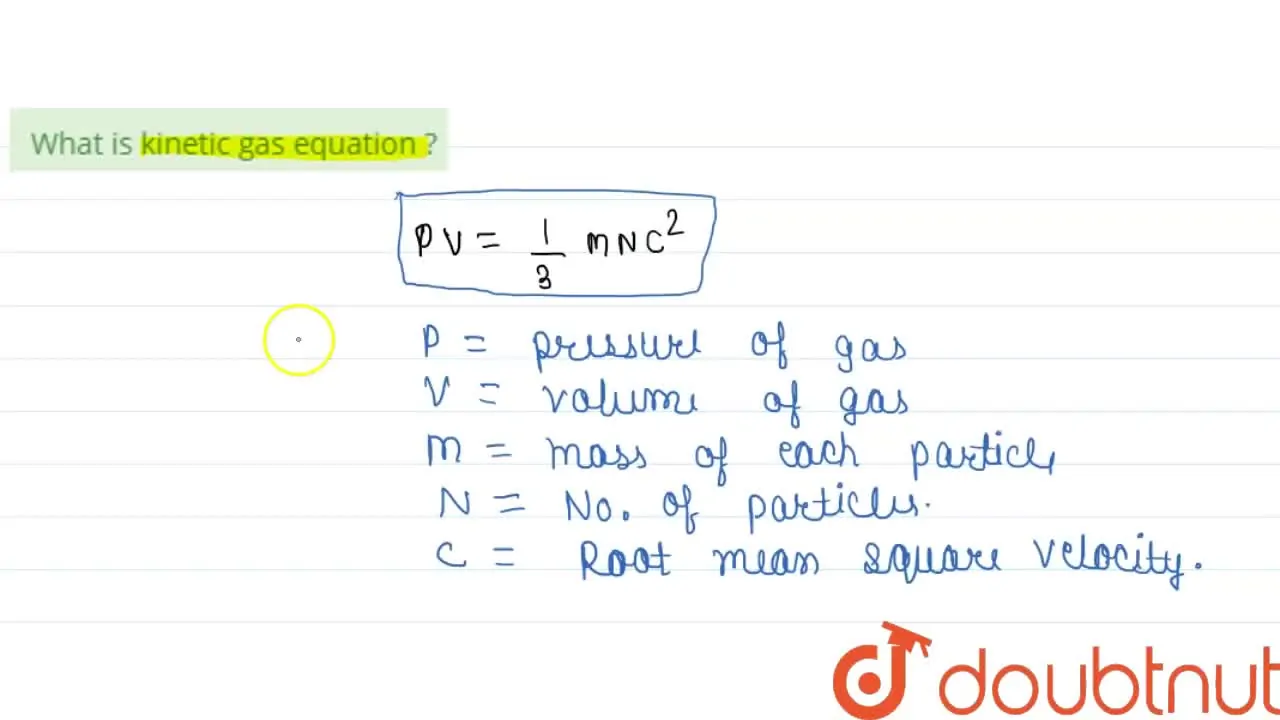 What is kinetic gas equation ?
PV = 1/3 mNC²
P = pressure of gas
V = volume of gas
m = mass of each particle
N = No. of particles.
C = Root mean square velocity.
doubtnut